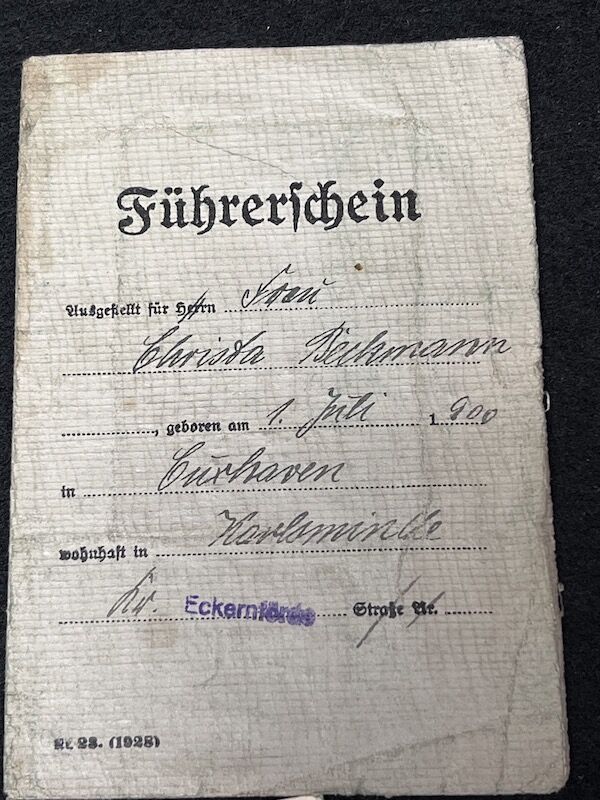 Führerschein
Ausgestellt für Herrn Frau
Christa Beckmann
, geboren am 1. Juli 1900
in Cuxhaven
wohnhaft in Karlsminde
Kr. Eckernförde Straße Nr.
Nr. 23. (1928)